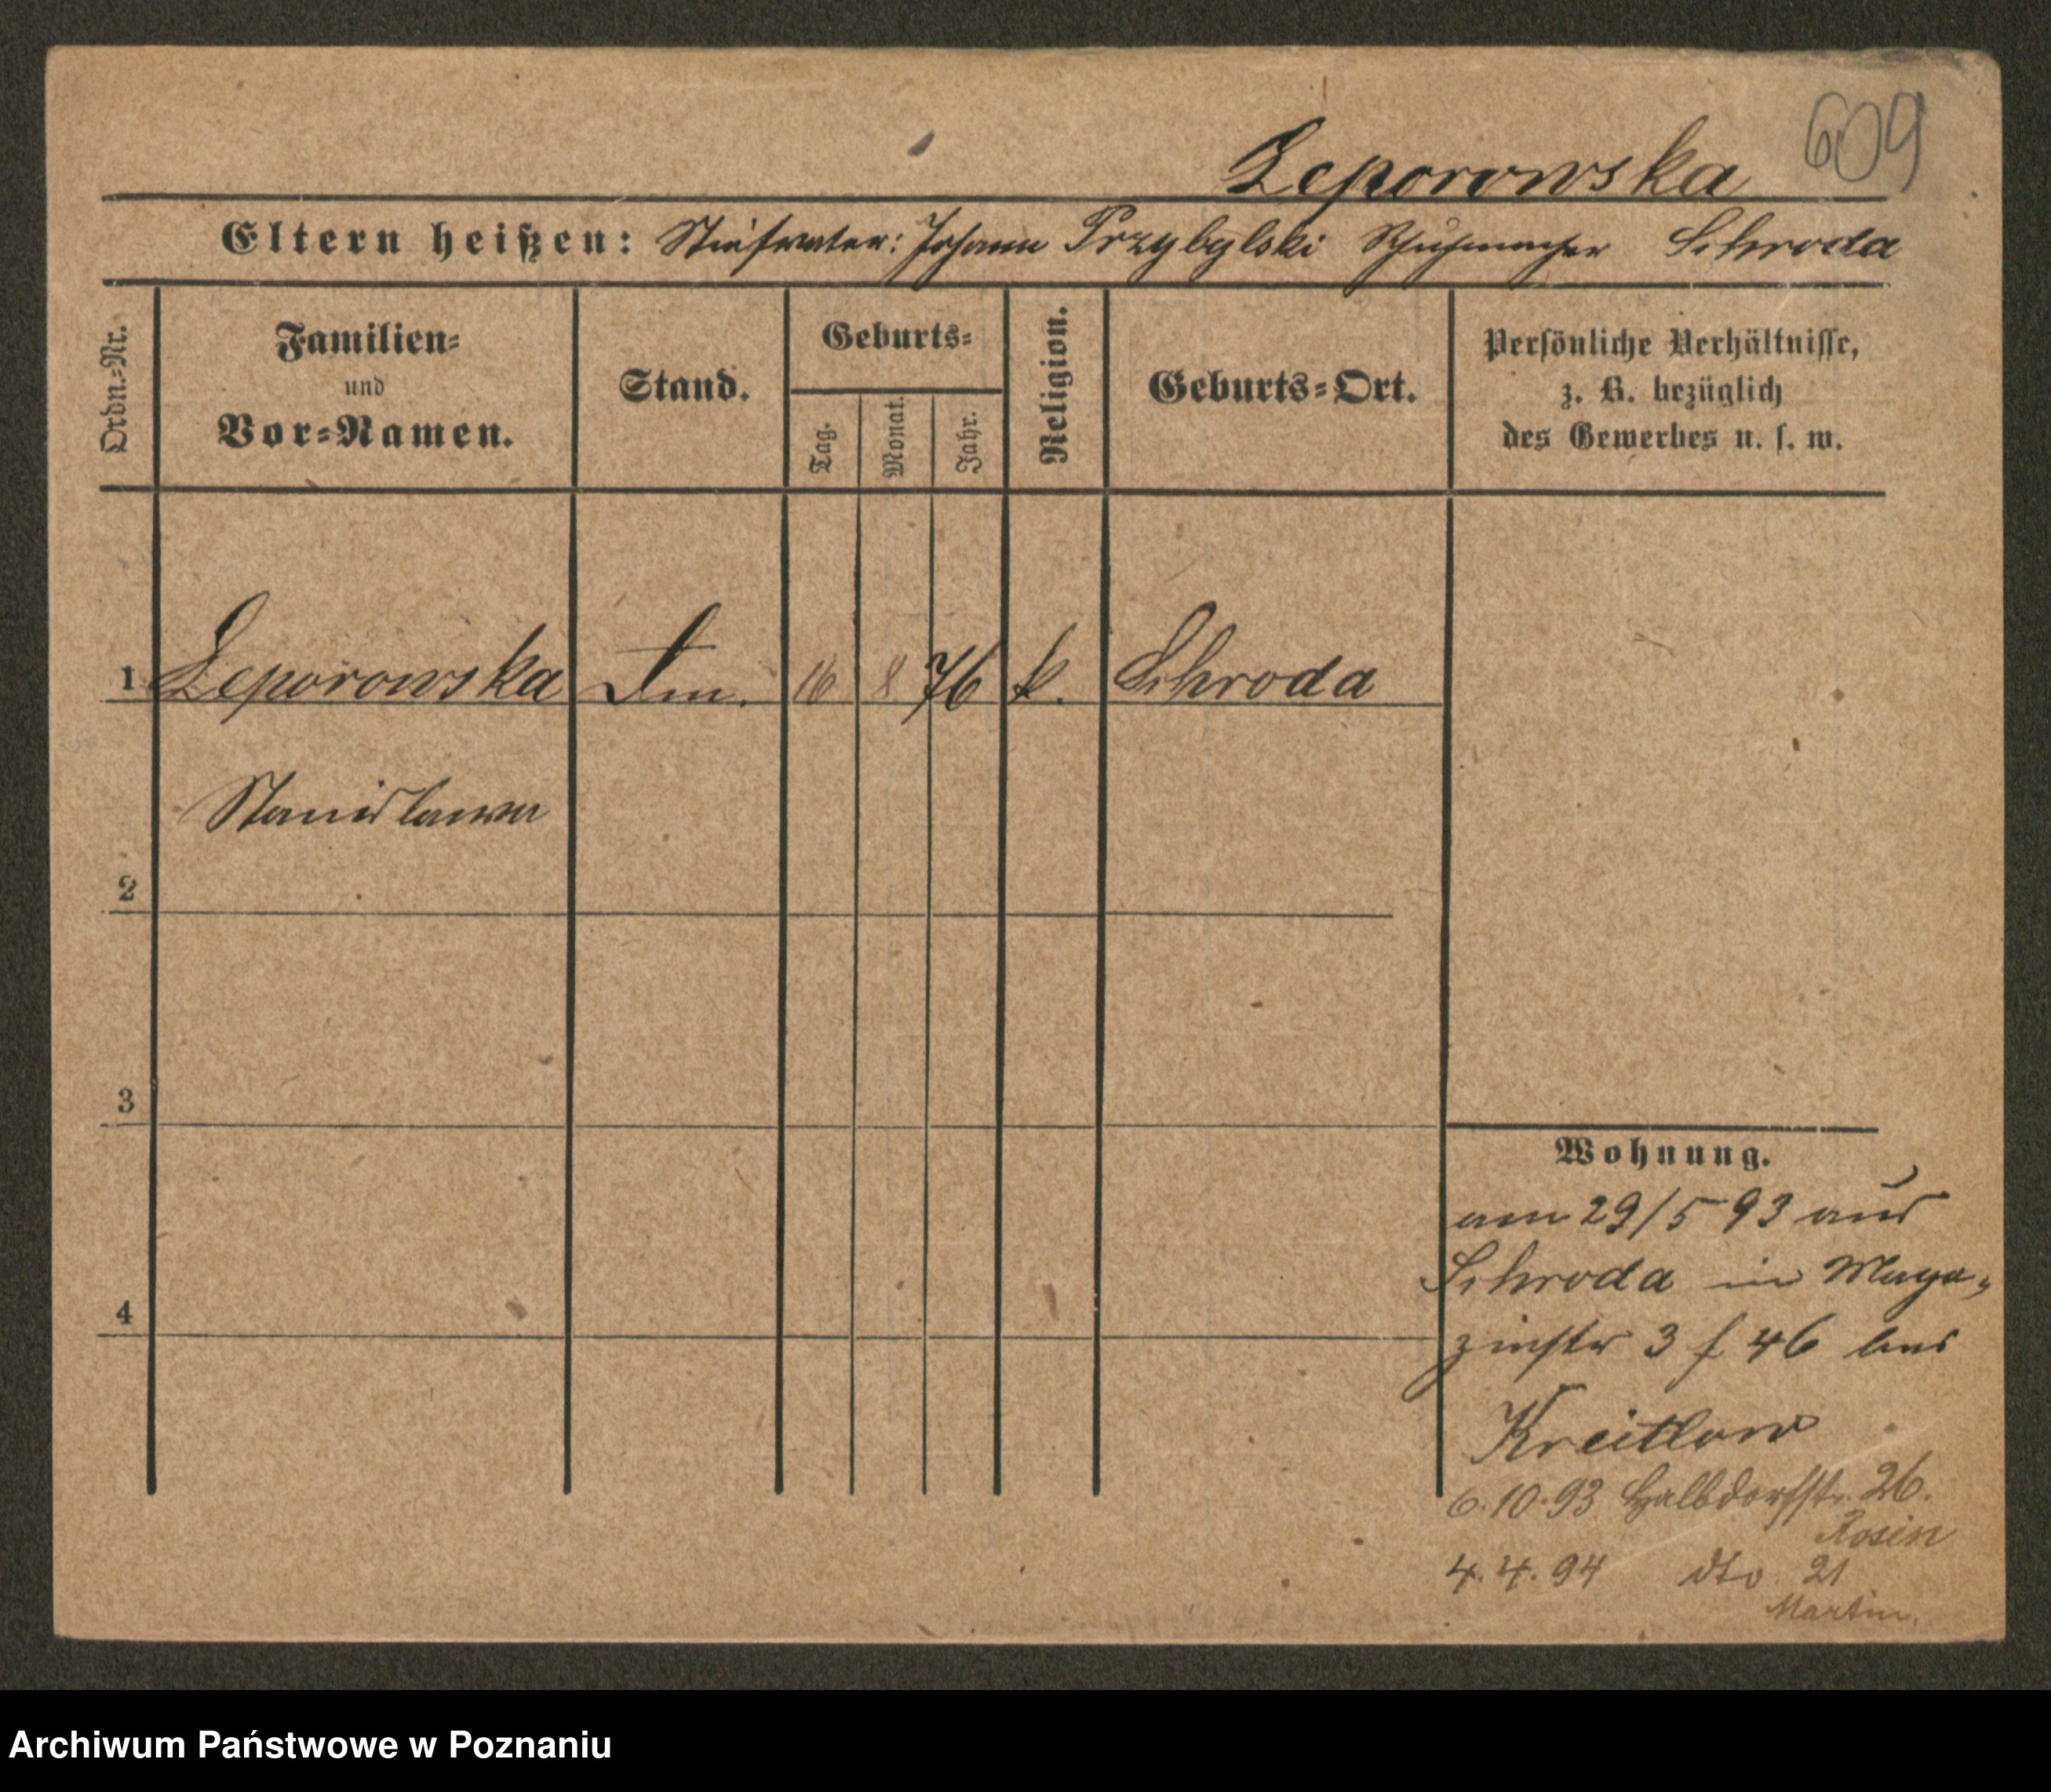 609
Leporowska
Eltern heißen: Stiefvater: Johann Przybylski Schuhmacher Schroda
Ordn.=Nr.
Familien=
und
Vor=Namen.
Stand.
Geburts=
Tag.
Monat.
Jahr.
Religion.
Geburts=Ort.
Persönliche Verhältnisse,
z. B. bezüglich
des Gewerbes u. s. w.
1 Leporowska Dm. 16 8 76 k. Schroda
Stanislawa
2
3
4
Wohnung.
am 29/5 93 aus
Schroda in Maga=
zinstr 3 f 46 bei
Kreitlow
6.10.93 Halbdorfstr. 26.
Rosin
4.4.94 dto. 21
Martin.
Archiwum Państwowe w Poznaniu